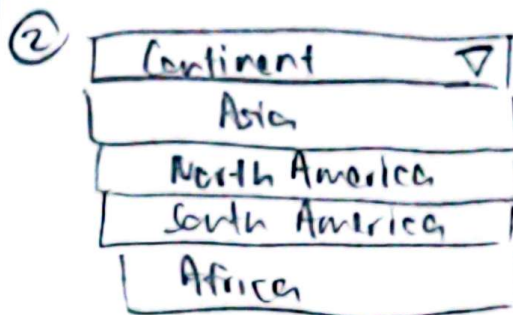 ② Continent ▽
Asia
North America
South America
Africa